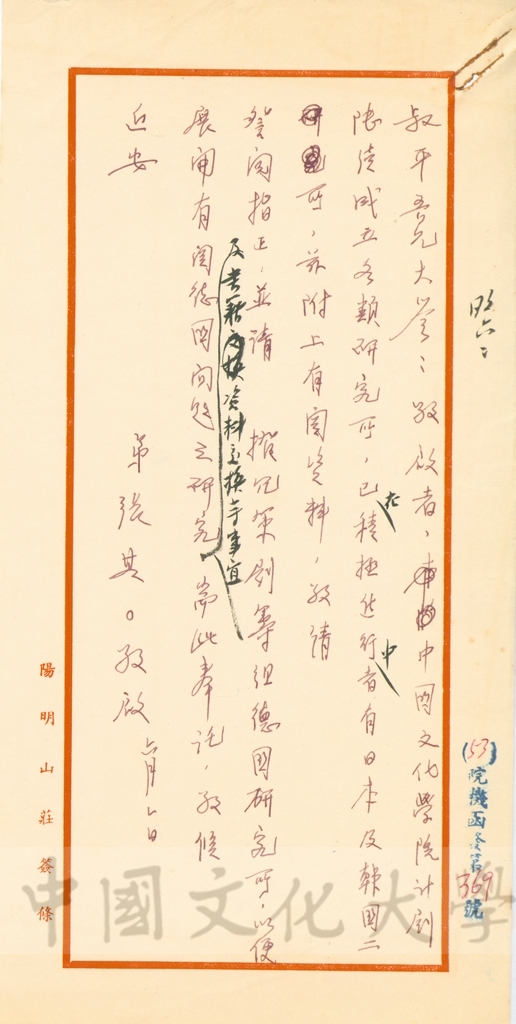 叔平吾兄大鑒：敬啟者，中國文化學院計劃
陸續成立各類研究所，已在積極進行中者有日本及韓國二
所，茲附上有關資料，敬請
詧閱指正，並請 撥冗策劃籌組德國研究所，以便
展開有關德國問題之研究
及書籍資料交換等事宜
耑此奉託，敬候
近安
弟張其○敬啟 六月 日
(53)院機函發字369號
陽明山莊簽條
中國文化大學